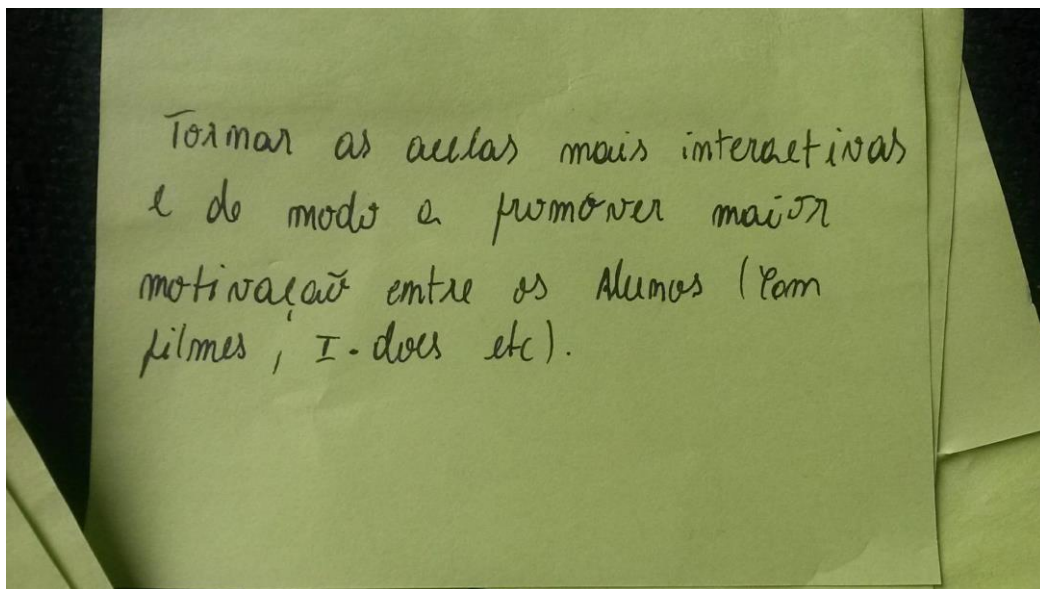 Tornar as aulas mais interactivas
e de modo a promover maior
motivação entre os alunos (com
filmes, I-docs etc).